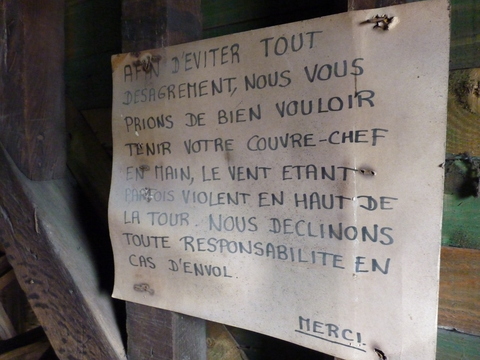 AFIN D'EVITER TOUT
DESAGREMENT, NOUS VOUS
PRIONS DE BIEN VOULOIR
TENIR VOTRE COUVRE-CHEF
EN MAIN, LE VENT ETANT
PARFOIS VIOLENT EN HAUT DE
LA TOUR. NOUS DECLINONS
TOUTE RESPONSABILITE EN
CAS D'ENVOL.
MERCI.